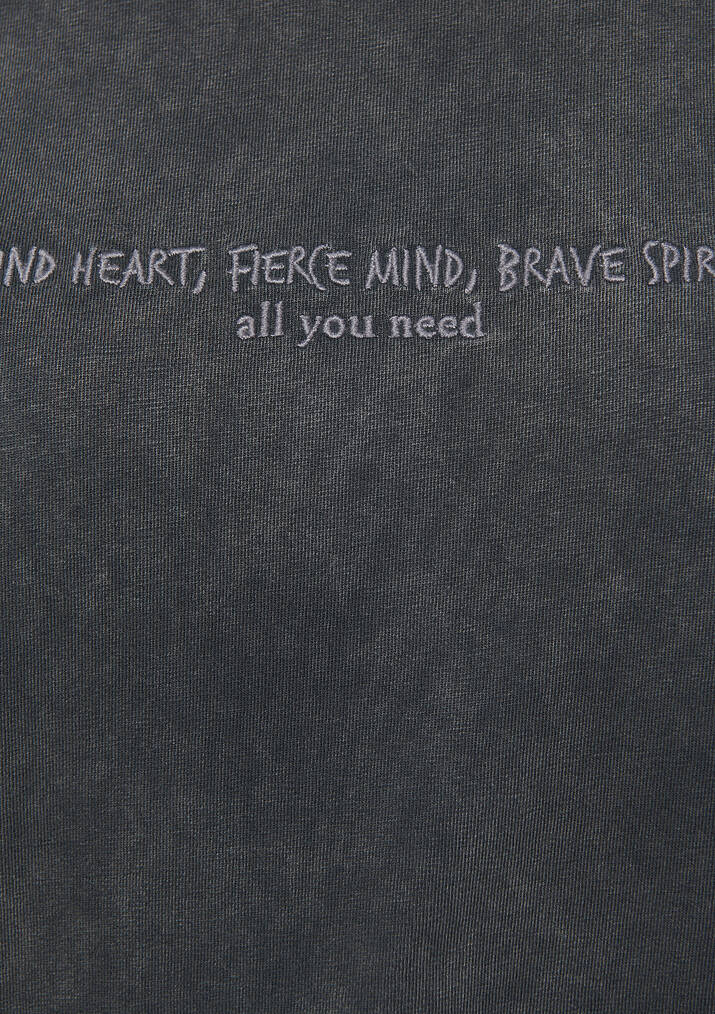 IND HEART, FIERCE MIND, BRAVE SPIR
all you need